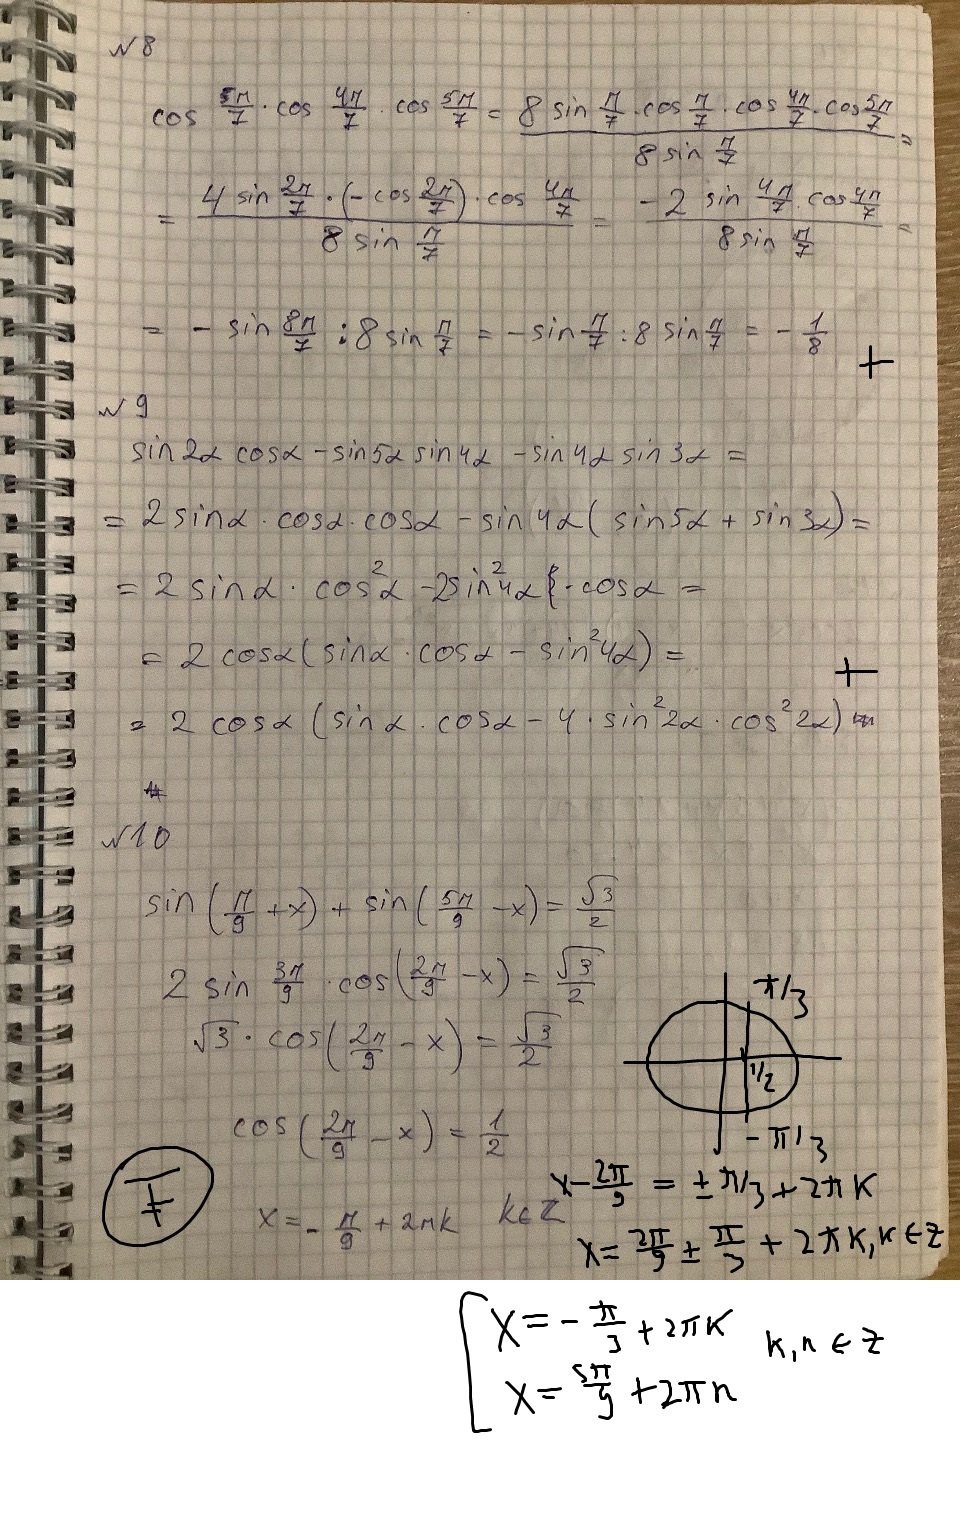 №8
cos 5π/7 · cos 4π/7 · cos 5π/7 = (8 sin π/7 · cos π/7 · cos 4π/7 · cos 5π/7)/(8 sin π/7) =
= (4 sin 2π/7 · (- cos 2π/7) · cos 4π/7)/(8 sin π/7) = (-2 sin 4π/7 · cos 4π/7)/(8 sin π/7) =
= - sin 8π/7 : 8 sin π/7 = - sin π/7 : 8 sin π/7 = - 1/8
+
№9
sin2α cosα - sin5α sin4α - sin4α sin3α =
= 2 sinα · cosα · cosα - sin4α ( sin5α + sin3α) =
= 2 sinα · cos²α - 2sin²4α · cosα =
= 2 cosα ( sinα · cosα - sin²4α) =
+
= 2 cosα (sinα · cosα - 4 · sin²2α · cos²2α)
№10
sin (π/9 + x) + sin (5π/9 - x) = √3/2
2 sin 3π/9 · cos (2π/9 - x) = √3/2
π/3
√3 · cos (2π/9 - x) = √3/2
1/2
cos (2π/9 - x) = 1/2
-π/3
x - 2π/9 = ± π/3 + 2πk
x = - π/9 + 2πk k∈Z
x = 2π/9 ± π/3 + 2πk, k∈Z
x = - π/3 + 2πk
k, n ∈ Z
x = 5π/9 + 2πn